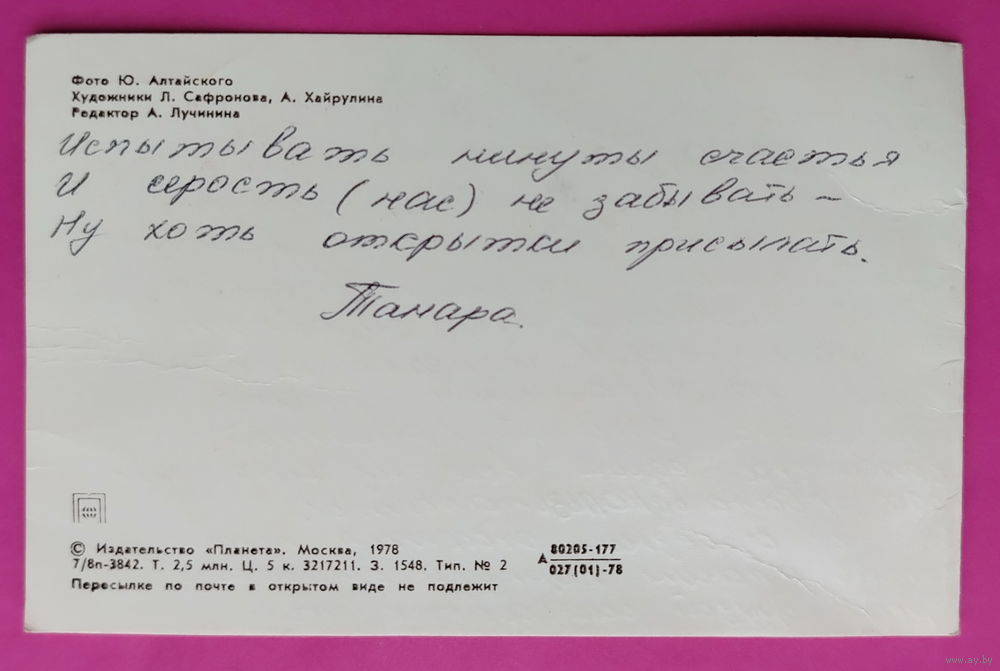 Фото Ю. Алтайского
Художники Л. Сафронова, А. Хайрулина
Редактор А. Лучинина
Испытывать минуты счастья
И серость (нас) не забывать –
Ну хоть открытки присылать.
Тамара.
© Издательство «Планета». Москва, 1978
7/8п-3842. Т. 2,5 млн. Ц. 5 к. 3217211. З. 1548. Тип. № 2
Пересылке по почте в открытом виде не подлежит
А 80205-177
027(01)-78
www.ay.by